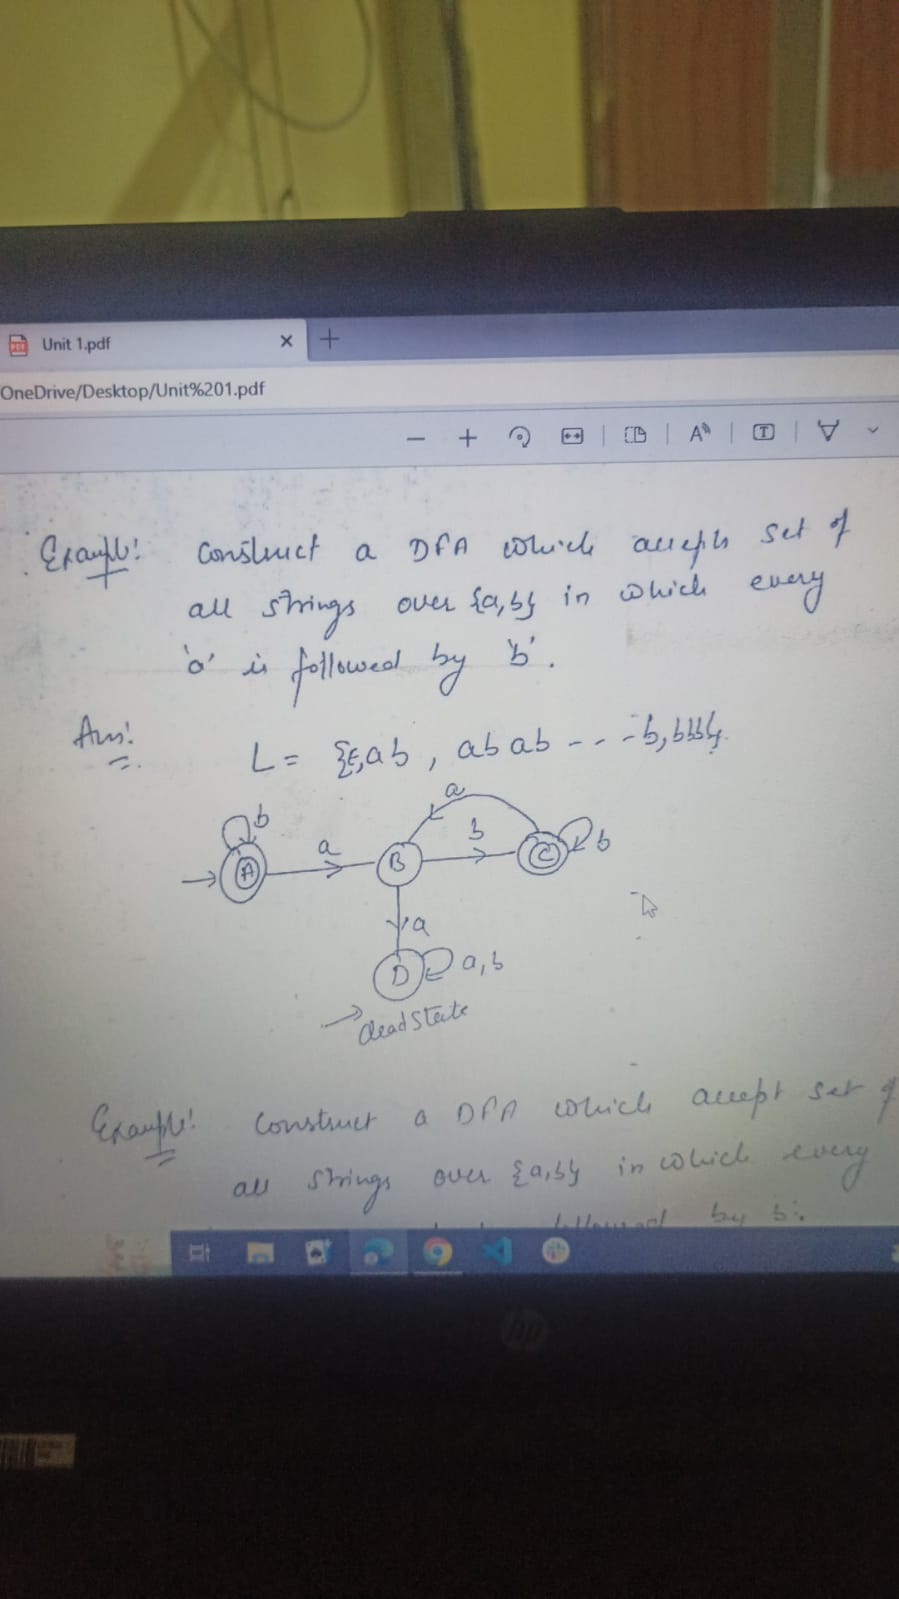 Unit 1.pdf
OneDrive/Desktop/Unit%201.pdf
Example! Construct a DFA which accepts set of
all strings over {a,b} in which every
'a' is followed by 'b'.
Ans!
L = {ε,ab, abab - - - b,bbb}.
b a a b b
A B C
a
D a,b
dead state
Example! Construct a DFA which accept set of
all strings over {a,b} in which every
followed by b.
hp